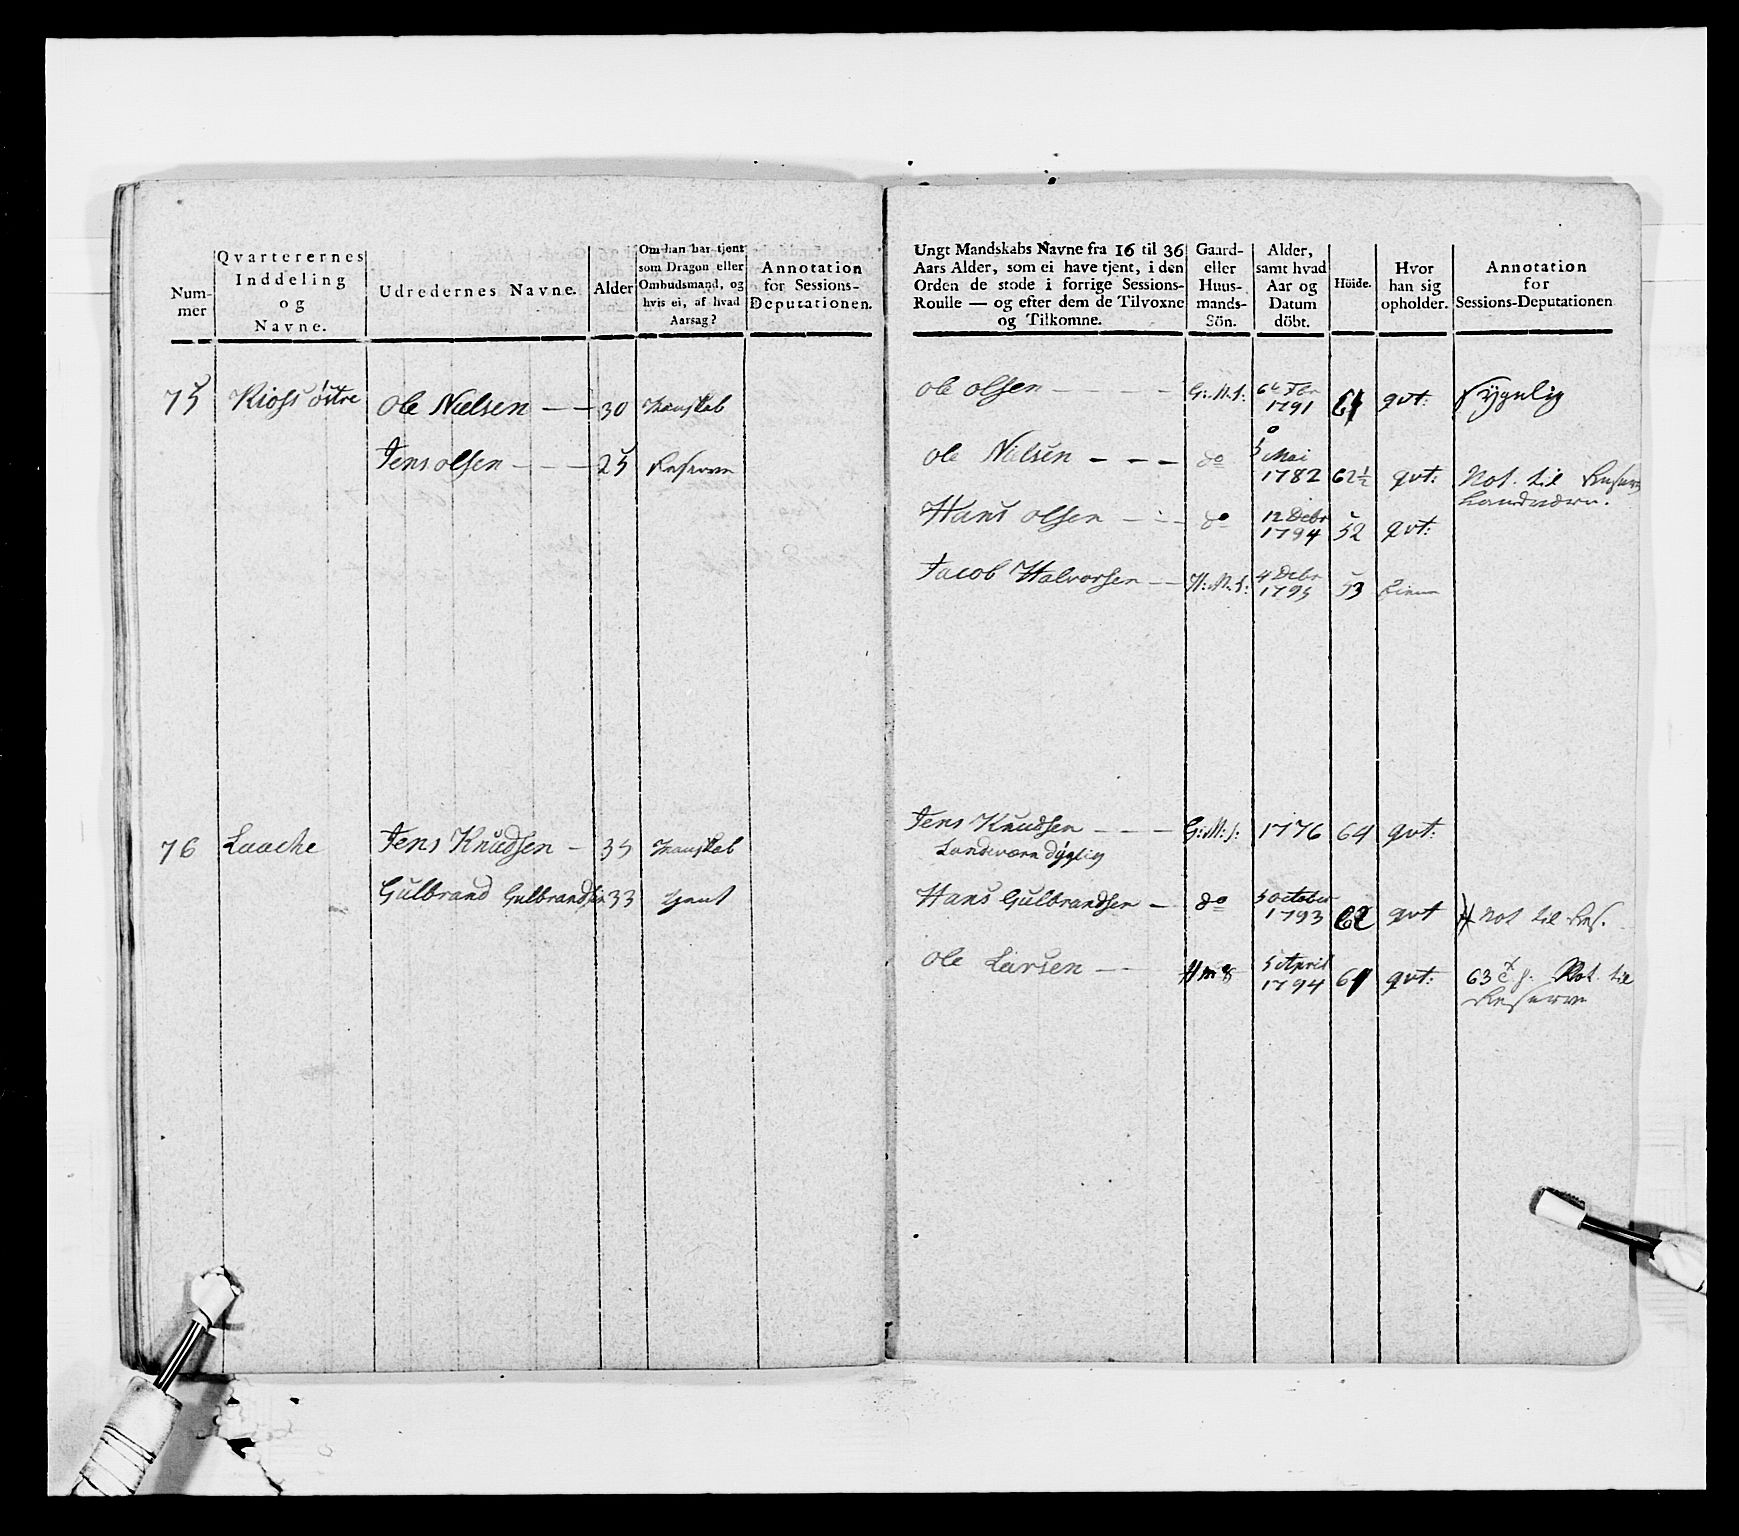 Num-
mer
Qvarterernes
Inddeling
og
Navne.
Udredernes Navne.
Alder
Om han har tjent
som Dragon eller
Ombudsmand, og
hvis ei, af hvad
Aarsag?
Annotation
for Sessions-
Deputationen.
75 Kiøss østre Ole Nielsen — — 30 Mauskab
Jens olsen — — — 25 Reserven
76 Laache Jens Knudsen — 35
Gulbrand Gulbrandsen 33 tjent
Ungt Mandskabs Navne fra 16 til 36
Aars Alder, som ei have tjent, i den
Orden de stode i forrige Sessions-
Roulle — og efter dem de Tilvoxne
og Tilkomne.
Gaard-
eller
Huus-
mands-
Sön.
Alder,
samt hvad
Aar og
Datum
döbt.
Höide.
Hvor
han sig
opholder.
Annotation
for
Sessions-Deputationen
ole olsen — — — — G: M: S: 1791 61 qvt: sygelig
ole Nielsen — — — do 5 Mai
1782 62½ qvt: Not. til Reserv
Landværn.
Hans olsen — — — do 12 Debr
1794 52 qvt:
Jacob Halvorsen — — H: M: S: 4 Debr
1795 53
Jens Knudsen — — — G: M: S: 1776 64 qvt:
Landværn dygtig
Hans Gulbrandsen — do 5 October
1793 62 qvt Not til Res.
ole Larsen — — H M S 5 April
1794 61 qvt: 63 Not. til
Reserven